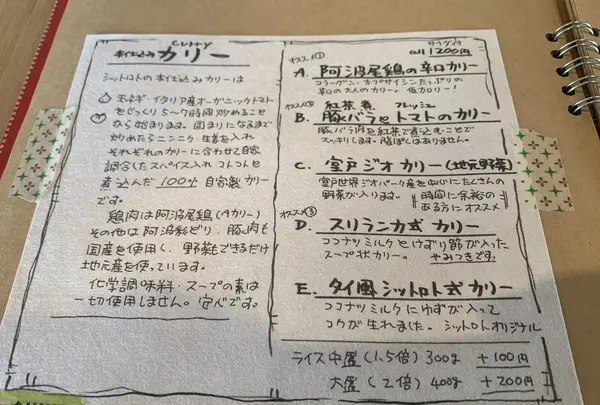 curry
本仕込み カリー
シットロトの本仕込みカリーは
玉ネギ・イタリア産オーガニックトマト
をじっくり5〜7時間炒めること
から始まります。固まりになるまで
炒めたらニンニク・生姜を入れ
それぞれのカリーに合わせて自家
調合したスパイス入れコトコトと
煮込んだ100%自家製カリー
です。
鶏肉は阿波尾鶏(Aカリー)
その他は阿波彩どり、豚肉も
国産を使用し、野菜もできるだけ
地元産を使っています。
化学調味料・スープの素は
一切使用しません。
サラダ付
all 1200円
オススメ①
A. 阿波尾鶏の辛口カリー
コラーゲン・カプサイシンたっぷりの
辛口の大人のカリー。低カロリー!
オススメ②
紅茶煮 フレッシュ
B. 豚バラとトマトのカリー
豚バラ肉を紅茶で煮込むことで
スッキリします。脂っぽくはありません。
C. 室戸ジオカリー(地元野菜)
室戸世界ジオパーク産を中心にたくさんの
野菜が入ります。
時間に余裕の
ある方にオススメ
オススメ③
D. スリランカ式カリー
ココナツミルクとけずり節が入った
スープ状カリー。 やみつきです。
E. タイ風シットロト式カリー
ココナツミルクにゆずが入って
コクが生れました。シットロトオリジナル
ライス中盛(1.5倍)300g +100円
大盛(2倍)400g +200円